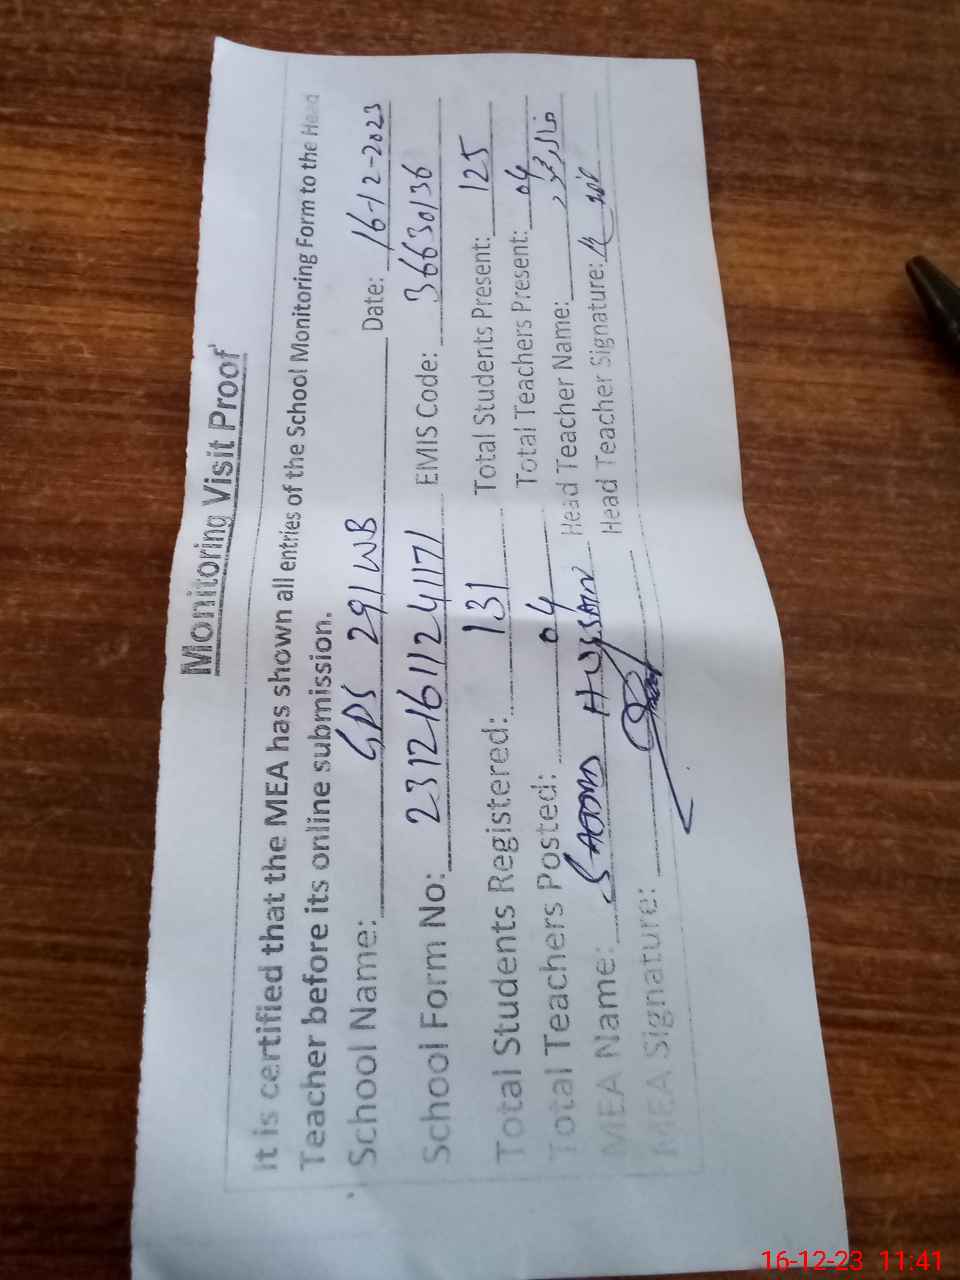 Monitoring Visit Proof
It is certified that the MEA has shown all entries of the School Monitoring Form to the Head
Teacher before its online submission.
School Name: GPS 291 WB Date: 16-12-2023
School Form No: 23121611241171 EMIS Code: 36630136
Total Students Registered: 131 Total Students Present: 125
Total Teachers Posted: 04 Total Teachers Present: 04
MEA Name: HUSSAIN Head Teacher Name:
MEA Signature: Head Teacher Signature:
16-12-23 11:41